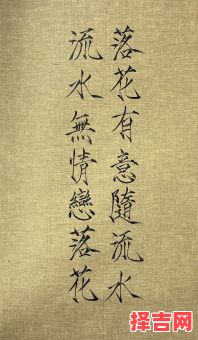 落花有意隨流水
流水無情戀落花
择吉网
zejiwang.com